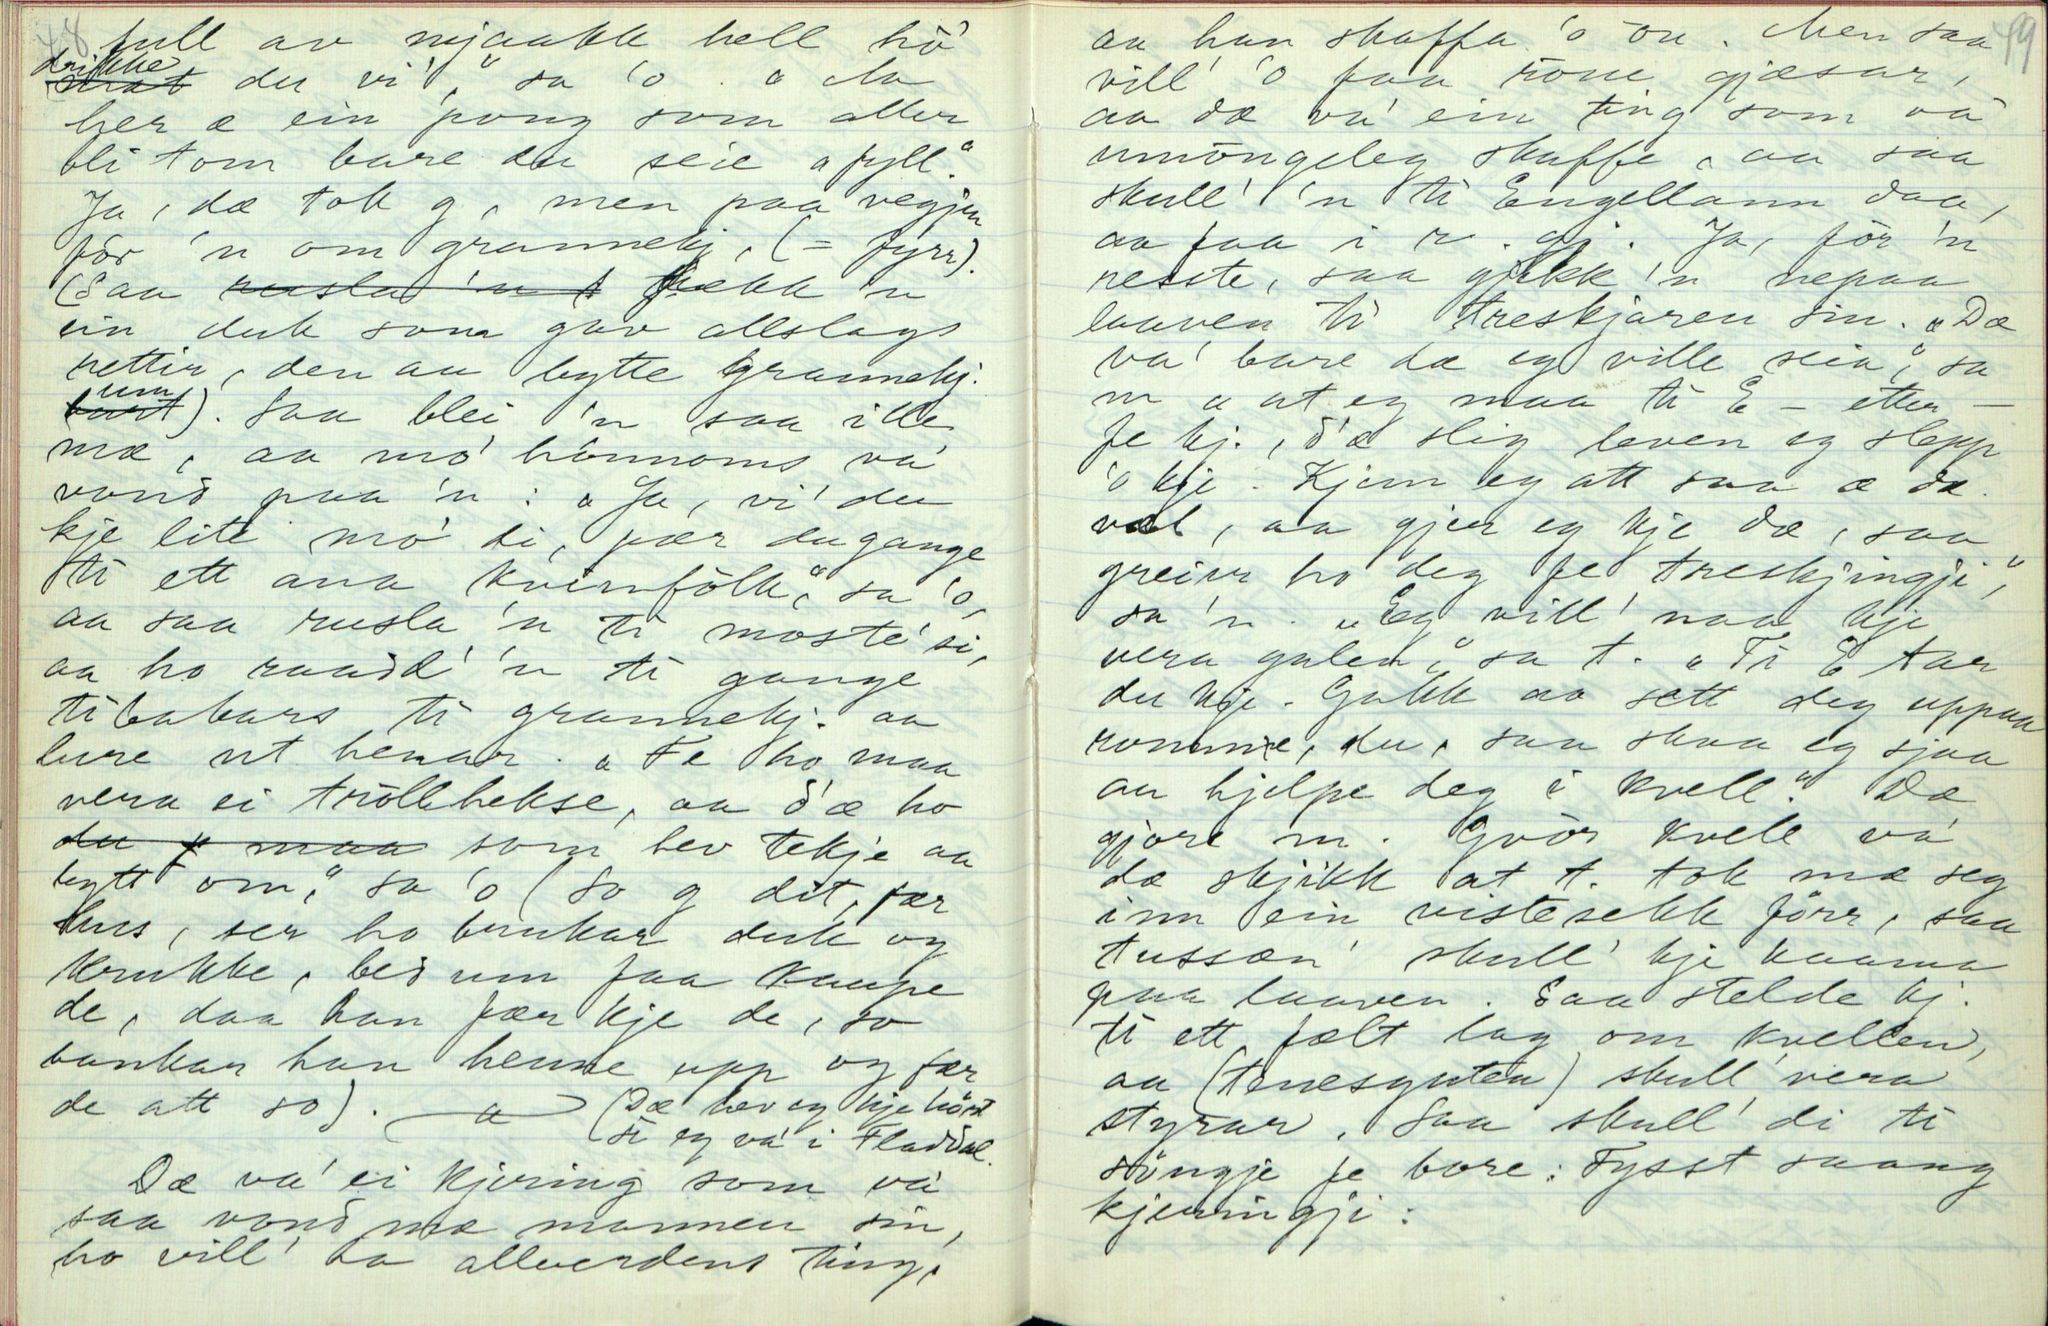 48
full av mjaakk hell hö
drikke
mat du vi'," sa 'o. "Aa
her æ ein pong som aller
bli tom bare du seie "fyll."
Ja, dæ tok g, men paa vegjen
för 'n om grannekj. (= fyrr).
(Saa rusla 'n t fækk 'n
ein duk som gav allslags
rettir, den aa bytte grannekj.
um
burt). Saa blei 'n saa ille
mæ, aa mo' hönnoms va'
vond paa 'n: "Ja, vi' du
kje lite mo' di, fær du gange
ti ett ana kvinnfölk," sa 'o,
aa saa rusla 'n ti moste' si,
aa ho raadd' 'n ti gange
tibakars ti grannekj. aa
lure ut henar. "Fe ho maa
vera ei tröllhekse, aa d'æ ho
du maa som hev tekje aa
bytt om," sa 'o (So g dit, fær
hus, ser ho brukar duk og
krukke, bed um faa kaupe
de, daa han fær kje de, so
bankar han henne upp og fær
de att so).
(Dæ hev eg kje hört
ti eg va' i Fladdal.
Dæ va' ei kjering som va'
saa vond mæ mannen sin,
ho vill' ha allverdens ting,
49
aa han skaffa 'o ou. Men saa
vill' 'o faa röue gjæsar,
aa dæ va' ein ting som va'
umöngeleg skaffe, aa saa
skull' 'n ti Engellann daa,
aa faa i r. gj. Ja, för 'n
resste, saa gjekk 'n nepaa
laaven ti treskjaren sin. "Dæ
va' bare dæ eg ville seia," sa
m "at eg maa ti E – etter –
fe kj., d'æ slig leven eg slepp
'o kje. Kjem eg att saa æ dæ
væl, aa gjer eg kje dæ, saa
greier ho deg fe treskjingji,"
sa 'n. "Eg vill' naa kje
vera galen," sa t. "Ti E tar
du kje. Gakk aa sett deg uppaa
romme, du, saa skaa eg sjaa
aa hjelpe deg i kvell." Dæ
gjore m. Gvör kvell va'
dæ skjikk at t. tok mæ seg
inn ein vistesekk förr, saa
tussan' skull' kje kaama
paa laaven. Saa stelde kj.
ti ett fælt lag om kvellen,
aa (tenesguten) skull' vera
styrar. Saa skull' di ti
söngje fe bore: Fysst saang
kjeringji: